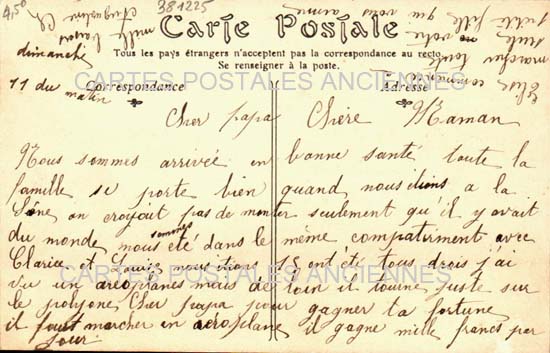 4,50
381225
Carte Postale
Tous les pays étrangers n'acceptent pas la correspondance au recto.
Se renseigner à la poste.
CARTES POSTALES ANCIENNES
Correspondance
Adresse
dimanche
11 du matin
Cher papa Chère Maman
Nous sommes arrivée en bonne santé toute la
famille se porte bien quand nous étions a la
on croyait pas de monter seulement qu'il y avait
du monde nous sommes été dans le même compatirment avec
Clarice et Louis nous étions 15 ont été tous drois j'ai
vu un areoplanes mais de loin il tourne juste sur
le polygone Cher papa pour gagner ta fortune
il faut marcher en aéroplane il gagne mille francs par
jour
CARTES POSTALES ANCIENNES
mille baisers
votre
petite fille qui
vous aime